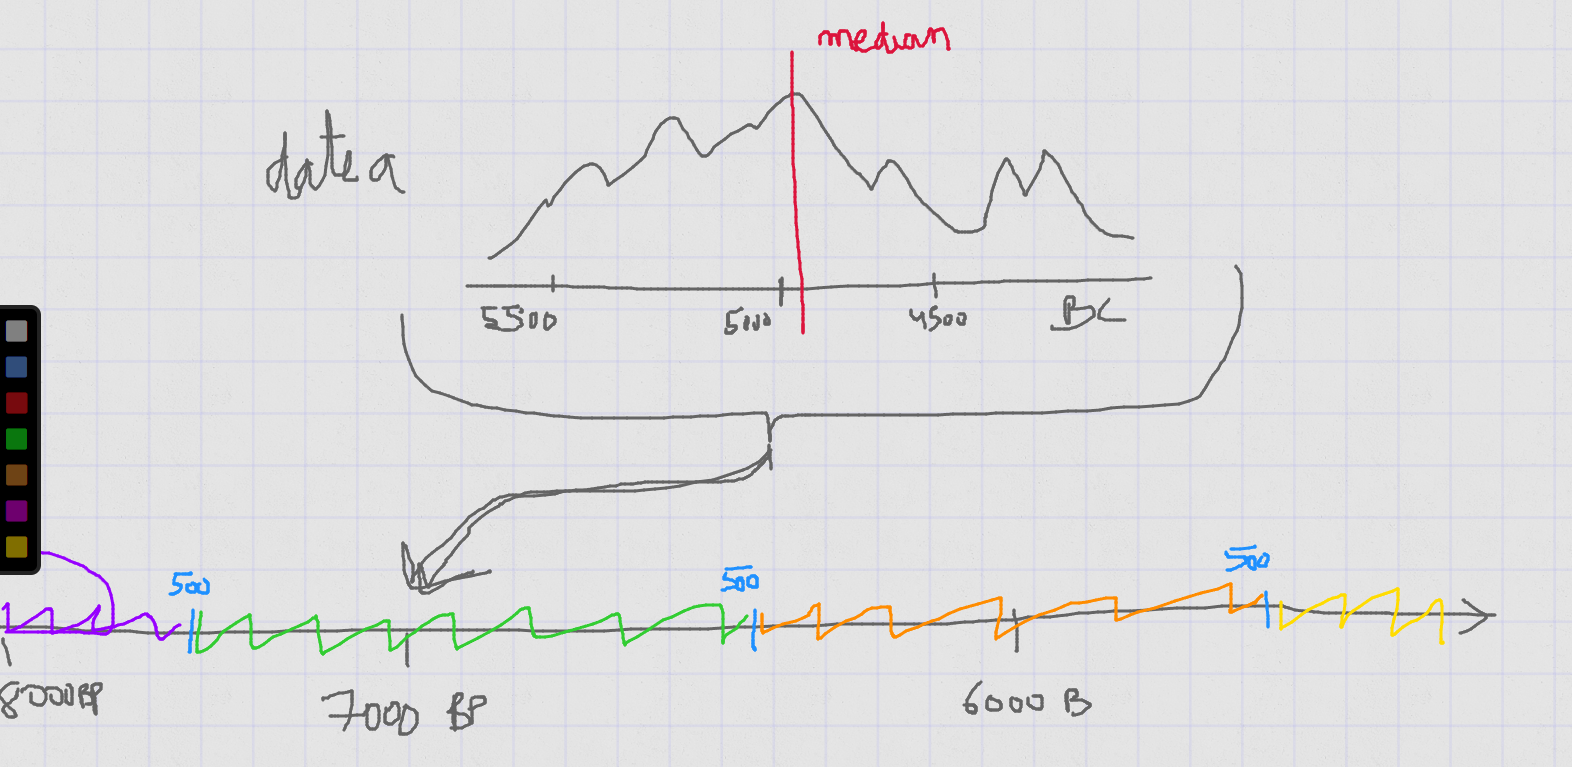 median
date a
5500 5000 4500 BC
500 500 500
8000BP 7000 BP 6000 B